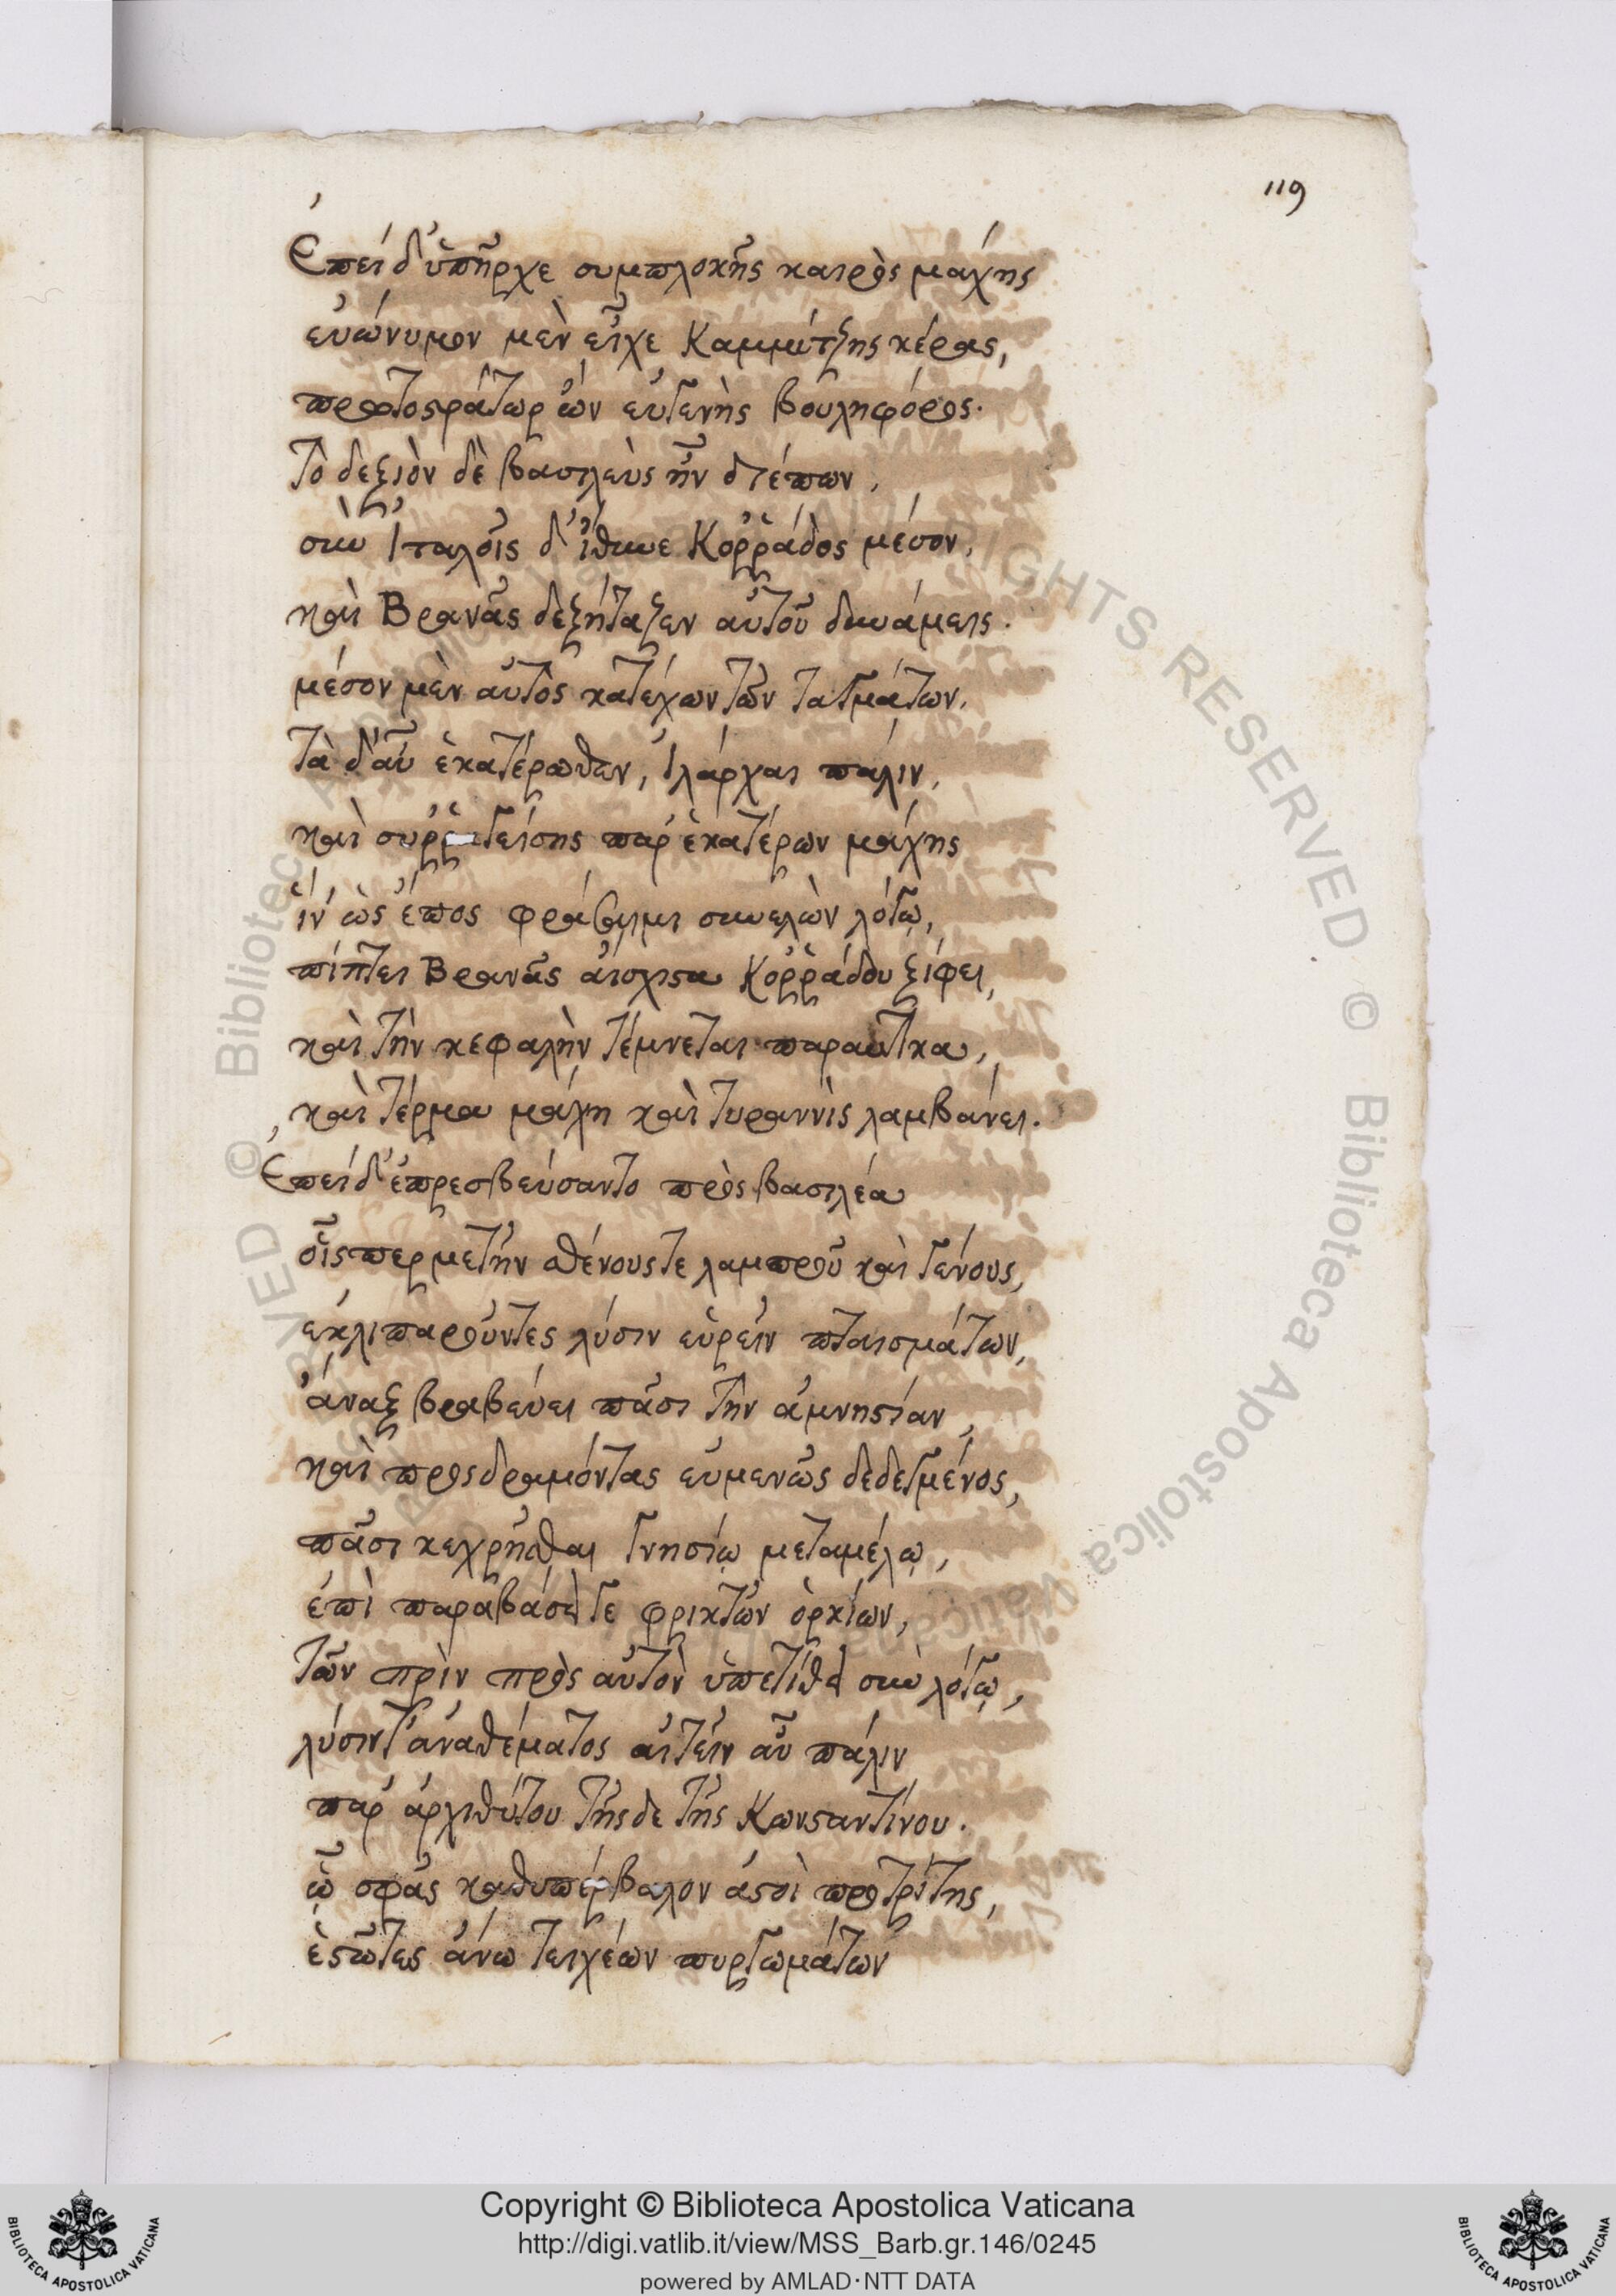 119
Ἐπεὶ δ' ὑπῆρχε συμπλοκῆς καιρὸς μάχης
εὐώνυμον μὲν εἶχε Καμμύτζης κέρας,
πρωτοστράτωρ ὢν εὐγενὴς βουληφόρος.
Τὸ δεξιὸν δὲ βασιλεὺς ἦν διέπων,
σὺν Ἰταλοῖς δ' ἴθυνε Κορῥάδος μέσον,
καὶ Βρανᾶς δ' ἐξήταζεν αὐτοῦ δυνάμεις.
μέσον μὲν αὐτὸς κατέχων τῶν ταγμάτων,
τὰ δ' αὖ ἑκατέρωθεν, ἰλάρχαι πάλιν,
καὶ συῤῥαγείσης παρ' ἑκατέρων μάχης
ἵν' ὡς ἔπος φράσαιμι συνελὼν λόγῳ,
πίπτει Βρανᾶς αἴσχιστα Κορῥάδου ξίφει,
καὶ τὴν κεφαλὴν τέμνεται παραυτίκα,
καὶ τέρμα μάχη καὶ τυραννὶς λαμβάνει.
Ἐπεὶ δ' ἐπρεσβεύσαντο πρὸς βασιλέα
οἷς περ μετῆν σθένους τε λαμπροῦ καὶ γένους,
ἐκλιπαροῦντες λύσιν εὑρεῖν πταισμάτων,
ἄναξ βραβεύει πᾶσι τὴν ἀμνηστίαν,
καὶ προσδραμόντας εὐμενῶς δεδεγμένος,
πᾶσι κεχρῆσθαι γνησίῳ μεταμέλῳ,
ἐπὶ παραβάσει τε φρικτῶν ὁρκίων,
τῶν πρὶν πρὸς αὐτὸν ὑπετίθει σὺν λόγῳ,
λύσιν τ' ἀναθέματος αἰτεῖν αὖ πάλιν
παρ' ἀρχιθύτου τῆς δε τῆς Κωνσταντίνου.
ᾧ σφᾶς καθυπέρβαλον ἀστοὶ προτρίτης,
ἑστῶτες ἄνω τειχέων πυργωμάτων
Copyright © Biblioteca Apostolica Vaticana
http://digi.vatlib.it/view/MSS_Barb.gr.146/0245
powered by AMLAD·NTT DATA